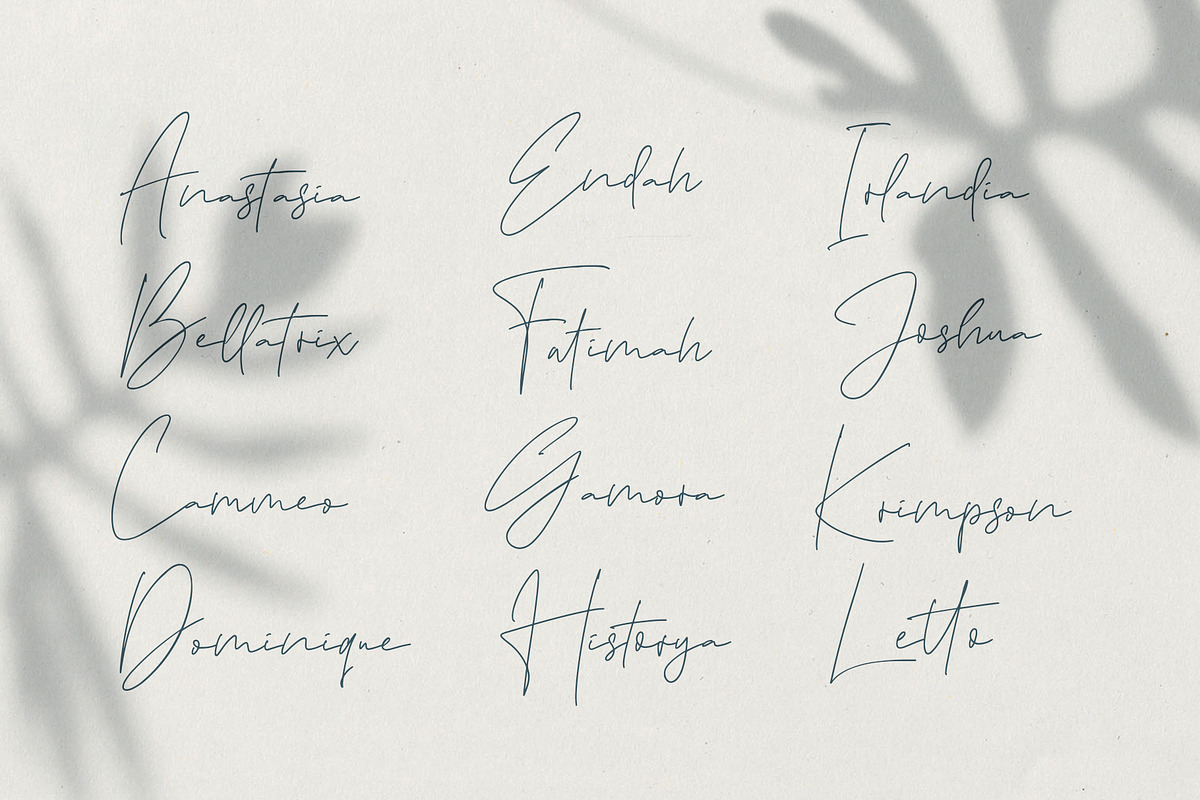 Anastasia
Bellatrix
Cammeo
Dominique
Endah
Fatimah
Gamora
Historya
Irlandia
Joshua
Krimpson
Letto